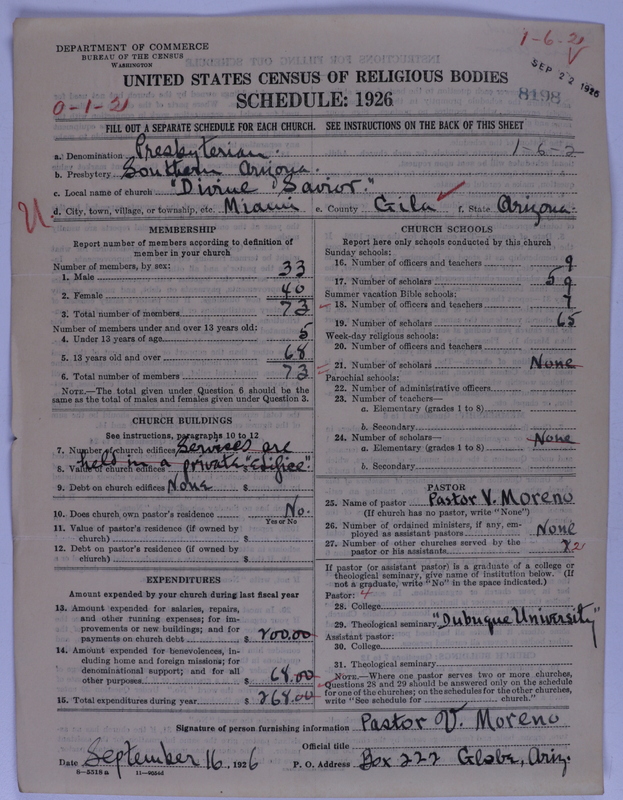 DEPARTMENT OF COMMERCE
BUREAU OF THE CENSUS
WASHINGTON
1-6-21
SEP 22 1926
8198
UNITED STATES CENSUS OF RELIGIOUS BODIES
0-1-21
SCHEDULE: 1926
FILL OUT A SEPARATE SCHEDULE FOR EACH CHURCH. SEE INSTRUCTIONS ON THE BACK OF THIS SHEET
a. Denomination Presbyterian. 1-6-2
b. Presbytery Southern Arizona.
c. Local name of church "Divine Savior."
d. City, town, village, or township, etc. Miami e. County Gila f. State Arizona.
MEMBERSHIP
Report number of members according to definition of
member in your church
Number of members, by sex:
1. Male 33
2. Female 40
3. Total number of members 73
Number of members under and over 13 years old:
4. Under 13 years of age 5
5. 13 years old and over 68
6. Total number of members 73
NOTE.—The total given under Question 6 should be the
same as the total of males and females given under Question 3.
CHURCH BUILDINGS
See instructions, paragraphs 10 to 12
7. Number of church edifices Services are
held in a private "edifice."
8. Value of church edifices $
9. Debt on church edifices None $
10. Does church own pastor's residence No.
Yes or No
11. Value of pastor's residence (if owned by
church) $
12. Debt on pastor's residence (if owned by
church) $
EXPENDITURES
Amount expended by your church during last fiscal year
13. Amount expended for salaries, repairs,
and other running expenses; for im-
provements or new buildings; and for
payments on church debt $ 200.00
14. Amount expended for benevolences, in-
cluding home and foreign missions; for
denominational support; and for all
other purposes $ 68.00
15. Total expenditures during year $ 268.00
CHURCH SCHOOLS
Report here only schools conducted by this church
Sunday schools:
16. Number of officers and teachers 9
17. Number of scholars 59
Summer vacation Bible schools:
18. Number of officers and teachers 7
19. Number of scholars 65
Week-day religious schools:
20. Number of officers and teachers
21. Number of scholars None
Parochial schools:
22. Number of administrative officers
23. Number of teachers—
a. Elementary (grades 1 to 8)
b. Secondary
24. Number of scholars— None
a. Elementary (grades 1 to 8)
b. Secondary
PASTOR
25. Name of pastor Pastor V. Moreno
(If church has no pastor, write "None")
26. Number of ordained ministers, if any, em-
ployed as assistant pastors None
27. Number of other churches served by the
pastor or his assistants
If pastor (or assistant pastor) is a graduate of a college or
theological seminary, give name of institution below. (If
not a graduate, write "No" in the space indicated.)
Pastor: 4
28. College
29. Theological seminary "Dubuque University"
Assistant pastor:
30. College
31. Theological seminary
NOTE.—Where one pastor serves two or more churches,
Questions 28 and 29 should be answered only on the schedule
for one of the churches; on the schedules for the other churches,
write "See schedule for church."
Signature of person furnishing information Pastor V. Moreno
Official title
Date September 16, 1926 P. O. Address Box 222 Globe, Ariz.
8—5518a 11—9054d